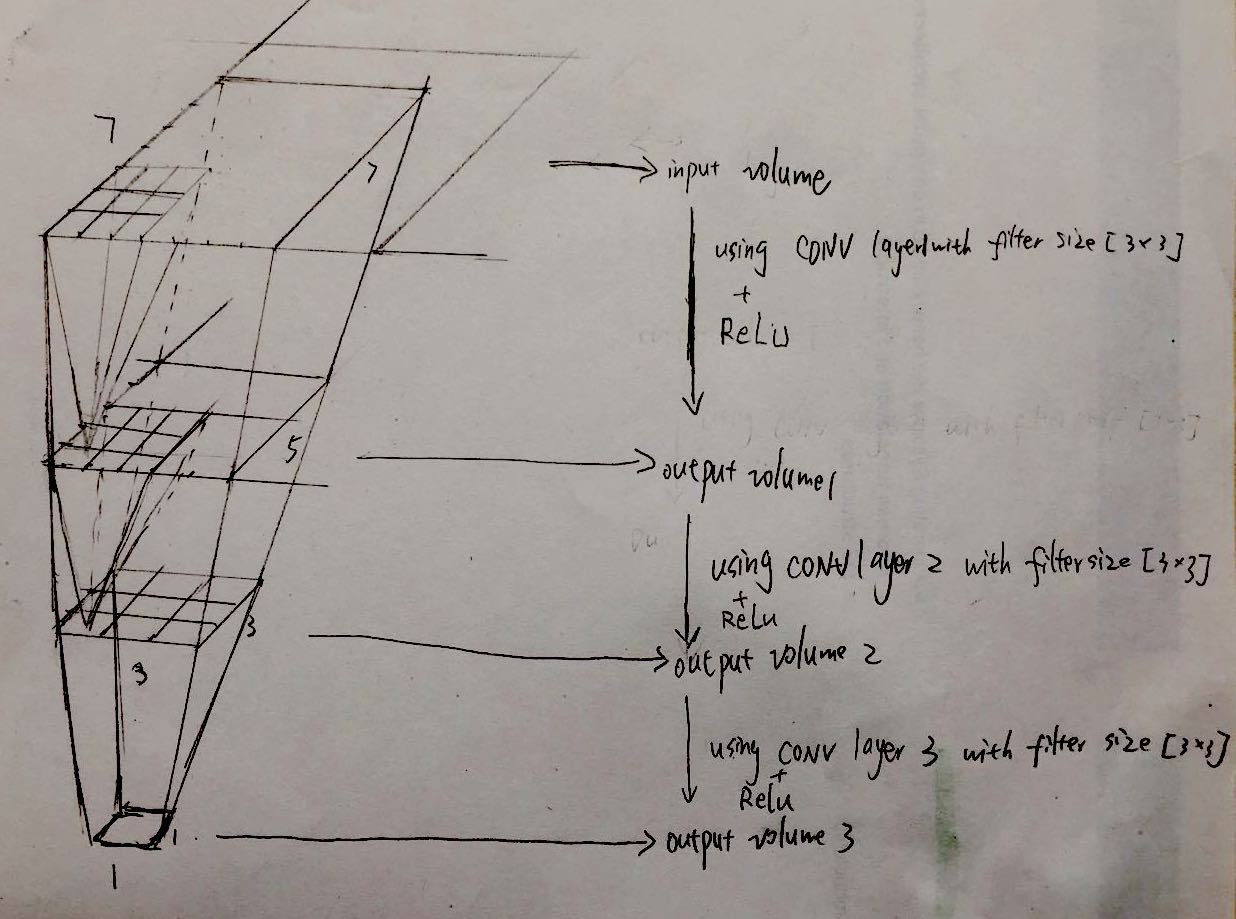 7
7
input volume
using CONV layer1 with filter size [3×3]
+
ReLU
5
output volume1
using CONV layer 2 with filter size [3×3]
+
ReLu
3
3
output volume 2
using CONV layer 3 with filter size [3×3]
+
Relu
1
output volume 3
1